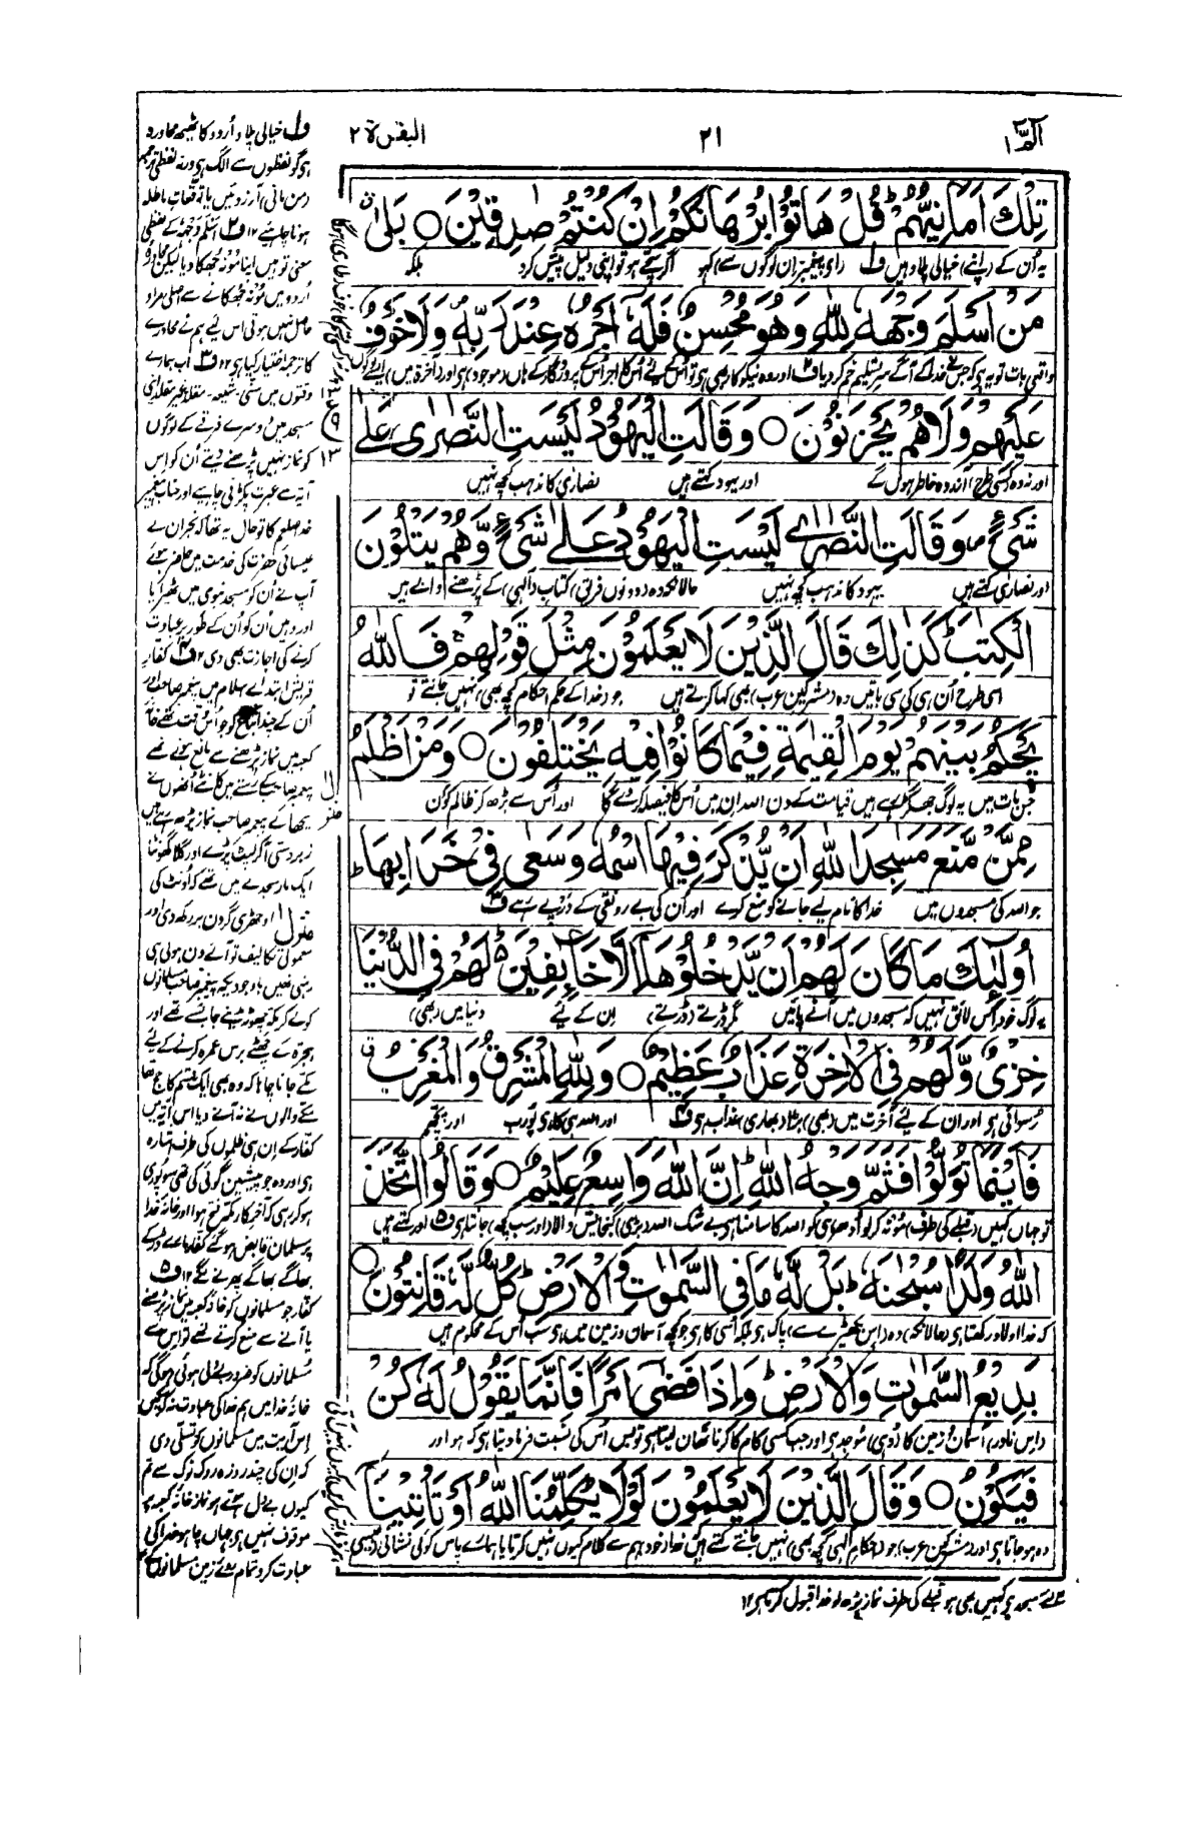 الٓمّٓ ١
٢١
البقرة ٢
تِلْكَ اَمَانِيُّهُمْ ؕ قُلْ هَاتُوْا بُرْهَانَكُمْ اِنْ كُنْتُمْ صٰدِقِيْنَ ○ بَلٰى ۗ
یہ اُن کے (اپنے) خیالی پلاؤ ہیں ف۱ (اے پیغمبر ان لوگوں سے) کہو اگر سچے ہو تو اپنی دلیل پیش کرو بلکہ
مَنْ اَسْلَمَ وَجْهَهٗ لِلّٰهِ وَهُوَ مُحْسِنٌ فَلَهٗٓ اَجْرُهٗ عِنْدَ رَبِّهٖ ۪ وَلَا خَوْفٌ
واقعی بات تو یہ ہی کہ جس نے خدا کے آگے سر تسلیم خم کر دیا ف۲ اور وہ نیکوکار بھی ہی تو اُس کے لئے اُس کا اجر اُس کے پروردگار کے ہاں (موجود) ہی اور (آخرۃ میں) ایسے لوگوں
عَلَيْهِمْ وَلَا هُمْ يَحْزَنُوْنَ ○ وَقَالَتِ الْيَهُوْدُ لَيْسَتِ النَّصٰرٰى عَلٰى
اور نہ وہ (کسی طرح) آزردہ خاطر ہوں گے اور یہود کہتے ہیں نصاریٰ کا مذہب کچھ نہیں
شَيْءٍ ۪ وَّقَالَتِ النَّصٰرٰى لَيْسَتِ الْيَهُوْدُ عَلٰى شَيْءٍ ۙ وَّهُمْ يَتْلُوْنَ
اور نصاریٰ کہتے ہیں یہود کا مذہب کچھ نہیں حالانکہ وہ (دونوں فریق) کتاب (الٰہی) کے پڑھنے والے ہیں
الْكِتٰبَ ؕ كَذٰلِكَ قَالَ الَّذِيْنَ لَا يَعْلَمُوْنَ مِثْلَ قَوْلِهِمْ ۚ فَاللّٰهُ
اسی طرح اُن ہی کی سی باتیں وہ (مشرکین عرب) بھی کہا کرتے ہیں جو (خدا کے حکم احکام کچھ بھی) نہیں جانتے تو
يَحْكُمُ بَيْنَهُمْ يَوْمَ الْقِيٰمَةِ فِيْمَا كَانُوْا فِيْهِ يَخْتَلِفُوْنَ ○ وَمَنْ اَظْلَمُ
جس بات میں یہ لوگ جھگڑ رہے ہیں قیامت کے دن اللہ ان میں اُس کا فیصلہ کر دے گا اور اُس سے بڑھ کر ظالم کون
مِمَّنْ مَّنَعَ مَسٰجِدَ اللّٰهِ اَنْ يُّذْكَرَ فِيْهَا اسْمُهٗ وَسَعٰى فِيْ خَرَابِهَا ؕ
جو اللہ کی مسجدوں میں خدا کا نام لیے جانے کو منع کرے اور اُن کی بے رونقی کے درپے رہے ف۳
اُولٰٓئِكَ مَا كَانَ لَهُمْ اَنْ يَّدْخُلُوْهَآ اِلَّا خَآئِفِيْنَ ؕ لَهُمْ فِي الدُّنْيَا
یہ لوگ خود اس لائق نہیں کہ مسجدوں میں آنے پائیں مگر ڈرتے (ڈرتے) اِن کے لیے دنیا میں (بھی)
خِزْيٌ وَّلَهُمْ فِي الْاٰخِرَةِ عَذَابٌ عَظِيْمٌ ○ وَلِلّٰهِ الْمَشْرِقُ وَالْمَغْرِبُ ۗ
رسوائی ہی اور ان کے لیے آخرت میں (بھی) بڑا (بھاری) عذاب ہی ف۴ اور اللہ ہی کا ہی پورب اور پچھم
فَاَيْنَمَا تُوَلُّوْا فَثَمَّ وَجْهُ اللّٰهِ ؕ اِنَّ اللّٰهَ وَاسِعٌ عَلِيْمٌ ○ وَقَالُوا اتَّخَذَ
تو جہاں کہیں (قبلے کی طرف) منہ کر لو اُدھر ہی کو اللہ کا سامنا ہی بے شک اللہ (بڑی) گنجایش والا (اور سب کچھ) جانتا ہی ف۵ اور کہتے ہیں
اللّٰهُ وَلَدًا ۙ سُبْحٰنَهٗ ؕ بَلْ لَّهٗ مَا فِي السَّمٰوٰتِ وَالْاَرْضِ ؕ كُلٌّ لَّهٗ قٰنِتُوْنَ ○
کہ خدا اولاد رکھتا ہی (حالانکہ) وہ (اس بکھیڑے سے) پاک ہی بلکہ اُسی کا ہی جو کچھ آسمان و زمین میں ہی سب اُس کے محکوم ہیں
بَدِيْعُ السَّمٰوٰتِ وَالْاَرْضِ ؕ وَاِذَا قَضٰٓى اَمْرًا فَاِنَّمَا يَقُوْلُ لَهٗ كُنْ
(اس نادر) آسمان و زمین کا (وہی) موجد ہی اور جب کسی کام کا کرنا ٹھان لیتا ہی تو بس اُس کی نسبت فرما دیتا ہی کہ ہو اور
فَيَكُوْنُ ○ وَقَالَ الَّذِيْنَ لَا يَعْلَمُوْنَ لَوْلَا يُكَلِّمُنَا اللّٰهُ اَوْ تَاْتِيْنَآ
وہ ہو جاتا ہی اور (مشرکین عرب) جو (احکام الٰہی کچھ بھی) نہیں جانتے کہتے ہیں خدا (خود) ہم سے کلام کیوں نہیں کرتا یا ہمارے پاس کوئی نشانی
ف۱ خیالی پلاؤ اُردو کا محاورہ
ہی گو لفظوں سے الگ ہی ورنہ لفظی ترجمہ
من مانی آرزوئیں یا توقعات باطلہ
ہونا چاہیے ۱۲ ف۲ اَسْلَمَ وَجْهَهٗ کے لفظی
معنی تو ہیں اپنا منہ جھکا دیا لیکن
اُردو میں منہ جھکانے سے اصلی مراد
حاصل نہیں ہوتی اس لیے ہم نے محاورے
کا ترجمہ اختیار کیا ہی ۱۲ ف۳ اب ہمارے
وقتوں میں سنی شیعہ مقلد غیر مقلد اپنی
مسجد میں دوسرے فرقے کے لوگوں
کو نماز نہیں پڑھنے دیتے اُن کو اس
آیۃ سے عبرت پکڑنی چاہیے اور جناب پیغمبر
خدا صلعم کا تو حال یہ تھا کہ نجران کے
عیسائی حضرت کی خدمت میں حاضر ہوئے
آپ نے اُن کو مسجد نبوی میں ٹھیرایا
اور وہیں اُن کو اُن کے طور پر عبادت
کرنے کی اجازت بھی دی ۱۲ ف۴ کفار
قریش ابتدائے اسلام میں پیغمبر صاحب اور
کعبہ میں نماز پڑھنے سے مانع ہوئے تھے
زبردستی آ کر لپٹ پڑے اور گلا گھونٹا
ایک بار سجدے میں تھے کہ اُونٹ کی
اوجھڑی گردن پر رکھ دی اور
معمولی تکالیف تو آئے دن ہوتی ہی
رہتی تھیں باوجودیکہ پیغمبر صاحب مسلمانوں
کو لے کر مکہ چھوڑ مدینے جا بسے تھے اور
ہجرۃ سے چھٹے برس عمرہ کرنے کے لیے
مکے جانا چاہا کہ وہ بھی ایک قسم کا حج تھا
مکے والوں نے نہ آنے دیا اس آیۃ میں
کفار کے ان ہی ظلموں کی طرف اشارہ
ہی اور وہ جو پیشین گوئی کی تھی سو پوری
ہو کر رہی کہ آخر کار مکہ فتح ہوا اور خانۂ خدا
پر مسلمان قابض ہو گئے کفار مارے ڈر کے
بھاگے بھاگے پھرنے لگے ۱۲ ف۵
کفار جو مسلمانوں کو خانہ کعبہ میں نماز پڑھنے
یا آنے سے منع کرتے تھے تو اس سے
مسلمانوں کو ضرور بے دلی ہوئی ہو گی کہ
خانۂ خدا میں ہم خدا کی عبادت نہ کریں
اس آیت میں مسلمانوں کو تسلی دی
کہ ان کی چند روزہ روک ٹوک سے تم
کیوں بے دل ہوتے ہو نماز خانۂ کعبہ پر
موقوف نہیں ہی جہاں چاہو خدا کی
عبادت کرو تمام روئے زمین مسلمانوں
مسجد ہی کہیں بھی ہو قبلے کی طرف نماز پڑھ لو خدا قبول کرے گا ۱۲